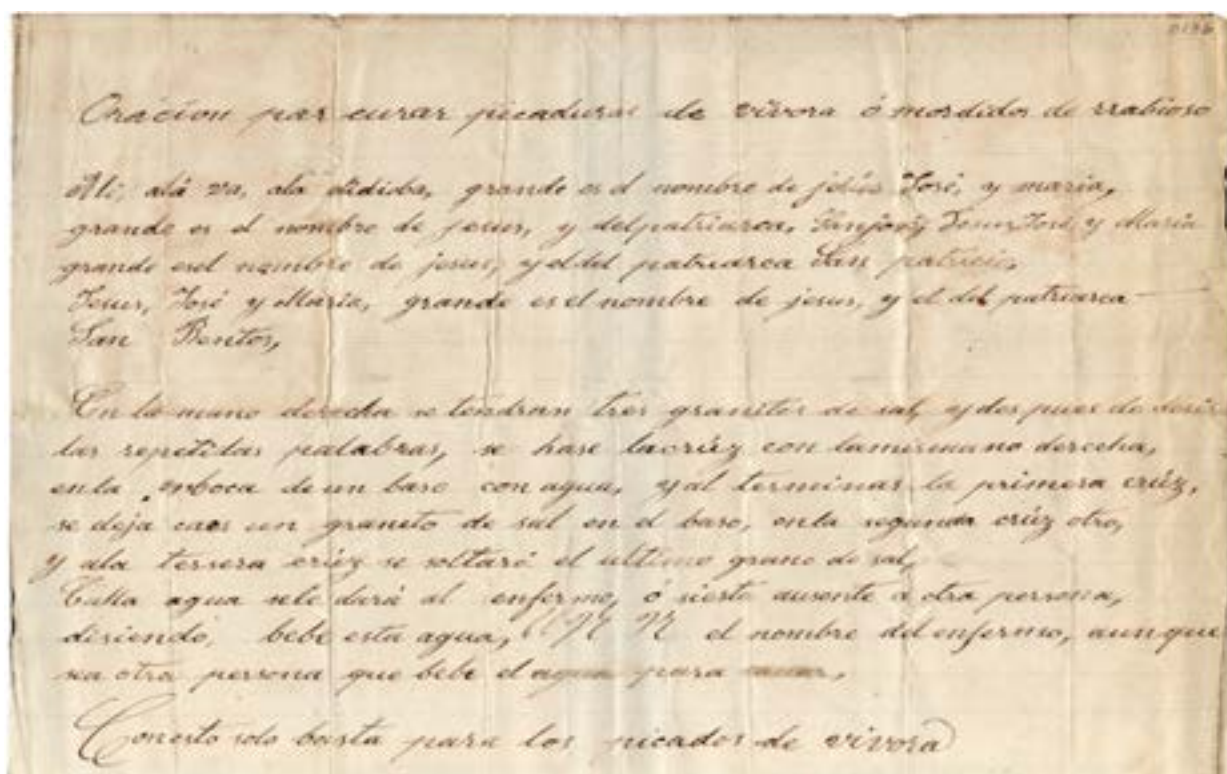 Oracion par curar picaduras de vivora ó mordidos de rrabioso
Ali, alá va, ala didiba, grande es el nombre de jesús José, y maria,
grande es el nombre de jesus, y delpatriarca, Sanjosé, Jesus, José, y Maria
grande esel nombre de jesus, y eldel patriarca San patricio,
Jesus, José y Maria, grande es el nombre de jesus, y el del patriarca
San Bentos,
En la mano derecha se tendran tres granitos de sal, y des pues de desir
las repetidas palabras, se hase lacrúz con lamismamano derecha,
enla enboca deun baso con agua, y al terminar la primera crúz,
se deja caer un granito de sal en el baso, enla segunda crúz otro,
y ala tersera crúz se soltará el ultimo grano de sal,
agua sele dará al enfermo, ó siesta ausente á otra persona,
disiendo, bebe esta agua, N N el nombre del enfermo, aunque
sea otra persona que bebe el agua para
Conesto solo basta para los picados de vivora